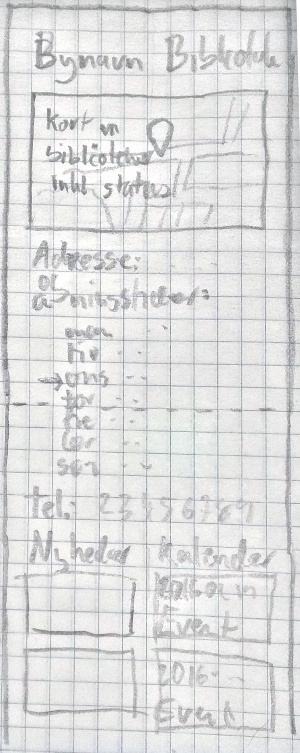 Bynavn Bibliotek
Kort m
biblioteker
inkl. status
Adresse:
Åbningstider:
man
tir
→ ons
tor
fre
lør
søn
tel: 23456789
Nyheder Kalender
Event
2016
Event